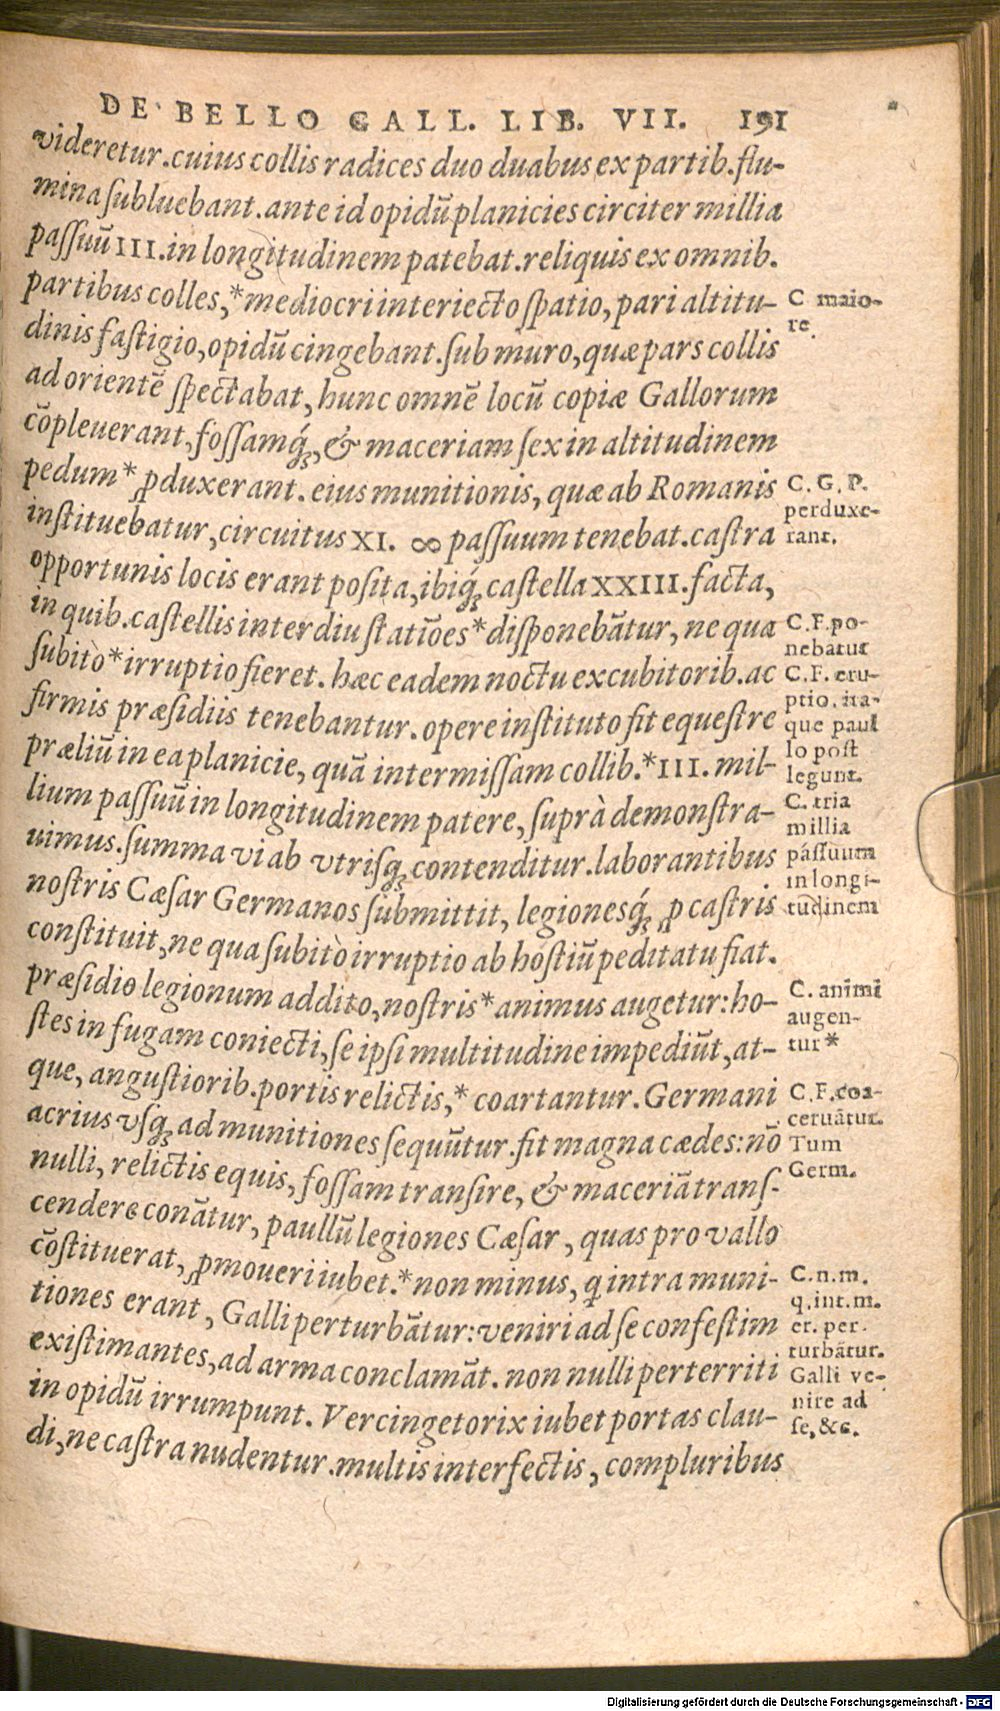 DE BELLO GALL. LIB. VII. 191
videretur. cuius collis radices duo duabus ex partib. flu-
mina ſubluebant. ante id opidũ planicies circiter millia
paſſuũ III. in longitudinem patebat. reliquis ex omnib.
partibus colles, * mediocri interiecto ſpatio, pari altitu-
dinis faſtigio, opidũ cingebant. ſub muro, quæ pars collis
ad orientẽ ſpectabat, hunc omnẽ locũ copiæ Gallorum
cõpleuerant, foſſamq́;, & maceriam ſex in altitudinem
pedum * ꝓduxerant. eius munitionis, quæ ab Romanis
inſtituebatur, circuitus XI. ∞ paſſuum tenebat. caſtra
opportunis locis erant poſita, ibiq́; caſtella XXIII. facta,
in quib. caſtellis interdiu ſtatiões * diſponebãtur, ne qua
ſubitò * irruptio fieret. hæc eadem noctu excubitorib. ac
firmis præſidiis tenebantur. opere inſtituto fit equeſtre
præliũ in ea planicie, quã intermiſſam collib. * III. mil-
lium paſſuũ in longitudinem patere, ſuprà demonſtra-
uimus. ſumma vi ab vtriſq; contenditur. laborantibus
noſtris Cæſar Germanos ſubmittit, legionesq́; ꝓ caſtris
conſtituit, ne qua ſubitò irruptio ab hoſtiũ peditatu fiat.
præſidio legionum addito, noſtris * animus augetur: ho-
ſtes in fugam coniecti, ſe ipſi multitudine impediũt, at-
que, anguſtiorib. portis relictis, * coartantur. Germani
acrius vſq; ad munitiones ſequũtur. fit magna cædes: nõ
nulli, relictis equis, foſſam tranſire, & maceriã tranſ-
cendere conãtur, paullũ legiones Cæſar, quas pro vallo
cõſtituerat, ꝓmoueri iubet. * non minus, q intra muni-
tiones erant, Galli perturbãtur: veniri ad ſe confeſtim
exiſtimantes, ad arma conclamãt. non nulli perterriti
in opidũ irrumpunt. Vercingetorix iubet portas clau-
di, ne caſtra nudentur. multis interfectis, compluribus
C. maio-
re.
C. G. P.
perduxe-
rant.
C. F. po-
nebatur
C. F. eru-
ptio. ita-
que paul
lo poſt
legunt.
C. tria
millia
páſſuum
in longi-
tudinem
C. animi
augen-
tur *
C. F. coa-
ceruãtur.
Tum
Germ.
C. n. m.
q. int. m.
er. per.
turbãtur.
Galli ve-
nire ad
ſe, &c.
Digitalisierung gefördert durch die Deutsche Forschungsgemeinschaft - DFG